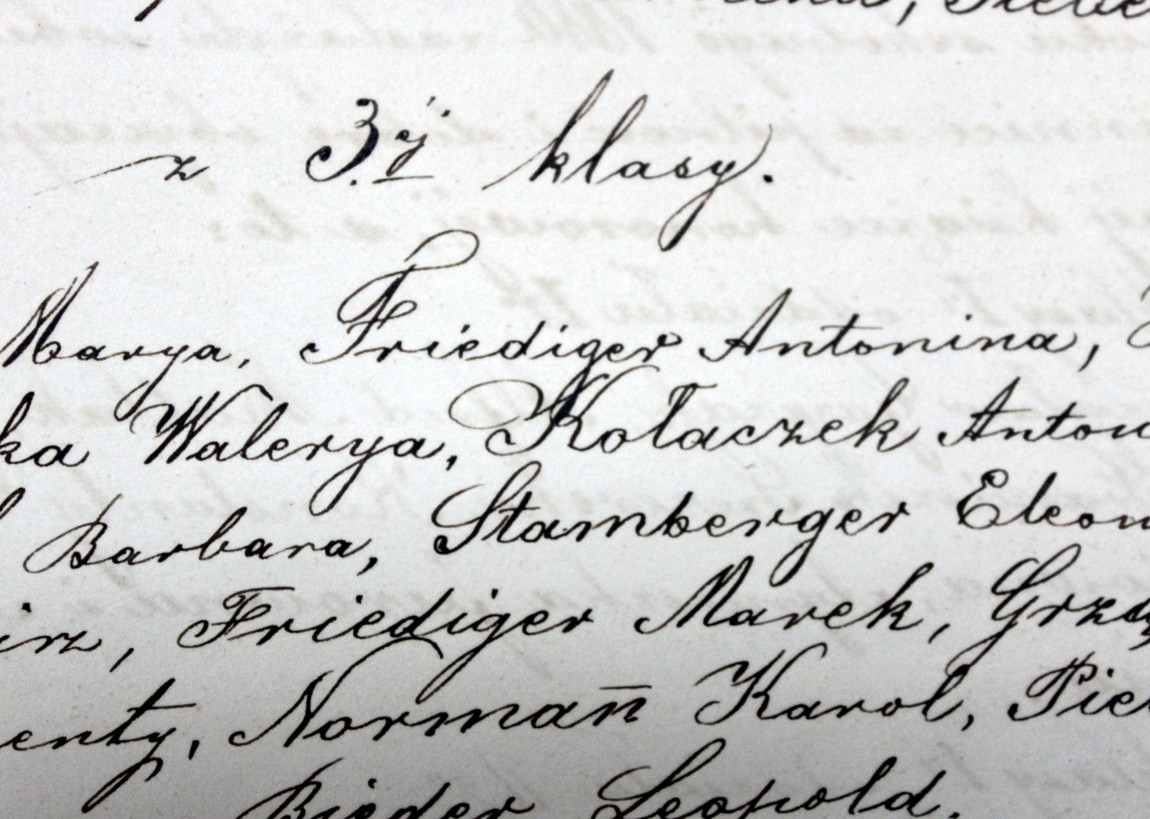 z 3ej klasy.
Marya, Friediger Antonina,
ka Walerya, Kołaczek Anton
Barbara, Stamberger Eleon
irz, Friediger Marek, Grzą
enty, Normañ Karol, Pie
Bieder Leopold.